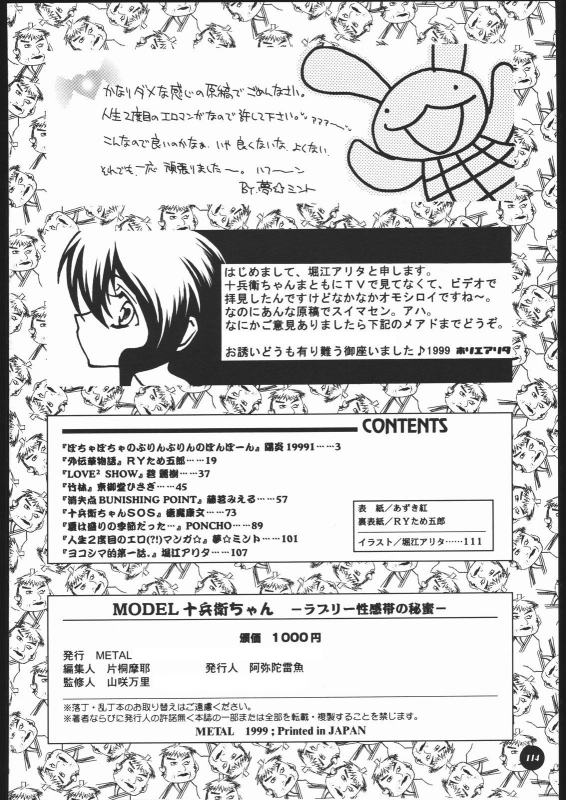 かなりダメな感じの原稿でごめんなさい。
人生2度目のエロマンガなので許して下さい。
こんなので良いのかなぁ。いや良くないな、よくない
それでも一応 頑張りました〜。ハフーン
BY.夢☆ミント
はじめまして、堀江アリタと申します。
十兵衛ちゃんまともにTVで見てなくて、ビデオで
拝見したんですけどなかなかオモシロイですね〜。
なのにあんな原稿でスイマセン。アハ。
なにかご意見ありましたら下記のメアドまでどうぞ。
お誘いどうも有り難う御座いました♪1999 ホリエアリタ
CONTENTS
『ぽちゃぽちゃのぷりんぷりんのぼんぼーん』陽炎19991……3
『外伝華物語』RYため五郎……19
『LOVE² SHOW』 麗樹……37
『竹林』東御堂ひさぎ…45
『消失点BUNISHING POINT』藤若みえる……57
『十兵衛ちゃんSOS』 康文……73
『憂は盛りの季節だった…』PONCHO……89
『人生2度目のエロ(?!)マンガ☆』夢☆ミント……101
『ヨコシマ的第一話.』堀江アリタ……107
表 紙／あずき紅
裏表紙／RYため五郎
イラスト／堀江アリタ……111
MODEL 十兵衛ちゃん －ラブリー性感帯の秘蜜－
頒価 1000円
発行 METAL
編集人 片桐摩耶 発行人 阿弥陀雷魚
監修人 山咲万里
※落丁・乱丁本のお取り替えはご遠慮ください。
※著者ならびに発行人の許諾無く本誌の一部または全部を転載・複製することを禁じます。
METAL 1999 ; Printed in JAPAN
114